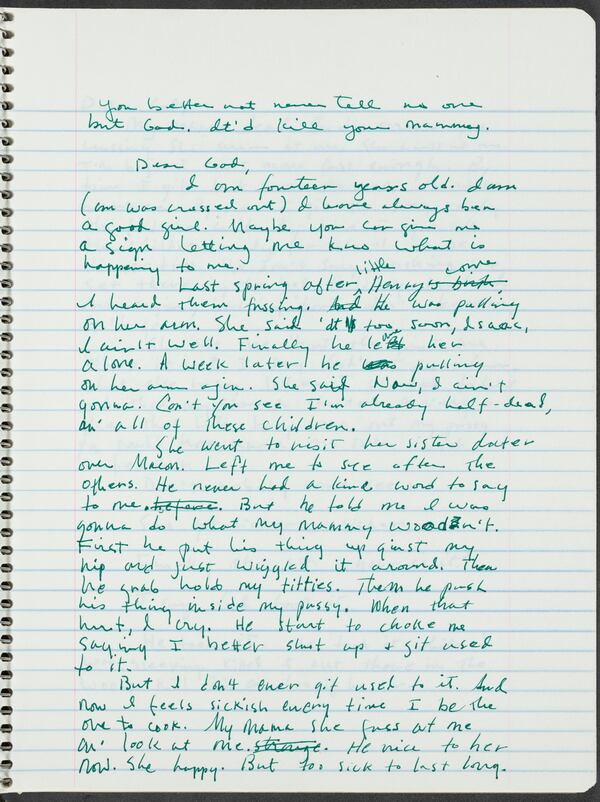 You better not never tell no one
but God. It'd kill your mammy.
Dear God,
I am fourteen years old. I am
(am was crossed out) I have always been
a good girl. Maybe you can give me
a sign letting me know what is
happening to me.
little come
Last spring after Henry's birth
I heard them fussing. And He was pulling
on her arm. She said it too soon,
I ain't well. Finally he left her
alone. A week later he was pulling
on her arm agin. She said Naw, I ain't
gonna. Can't you see I'm already half-dead,
an' all of these children.
She went to visit her sister
over Macon. Left me to see after the
others. He never had a kine word to say
to me. But he told me I was
gonna do what my mammy wouldn't.
[omitted]
He start to choke me
saying I better shut up + git used
to it.
But I don't ever git used to it. And
now I feels sickish every time I be the
one to cook. My mama she fuss at me
an' look at me strange. He nice to her
now. She happy. But too sick to last long.